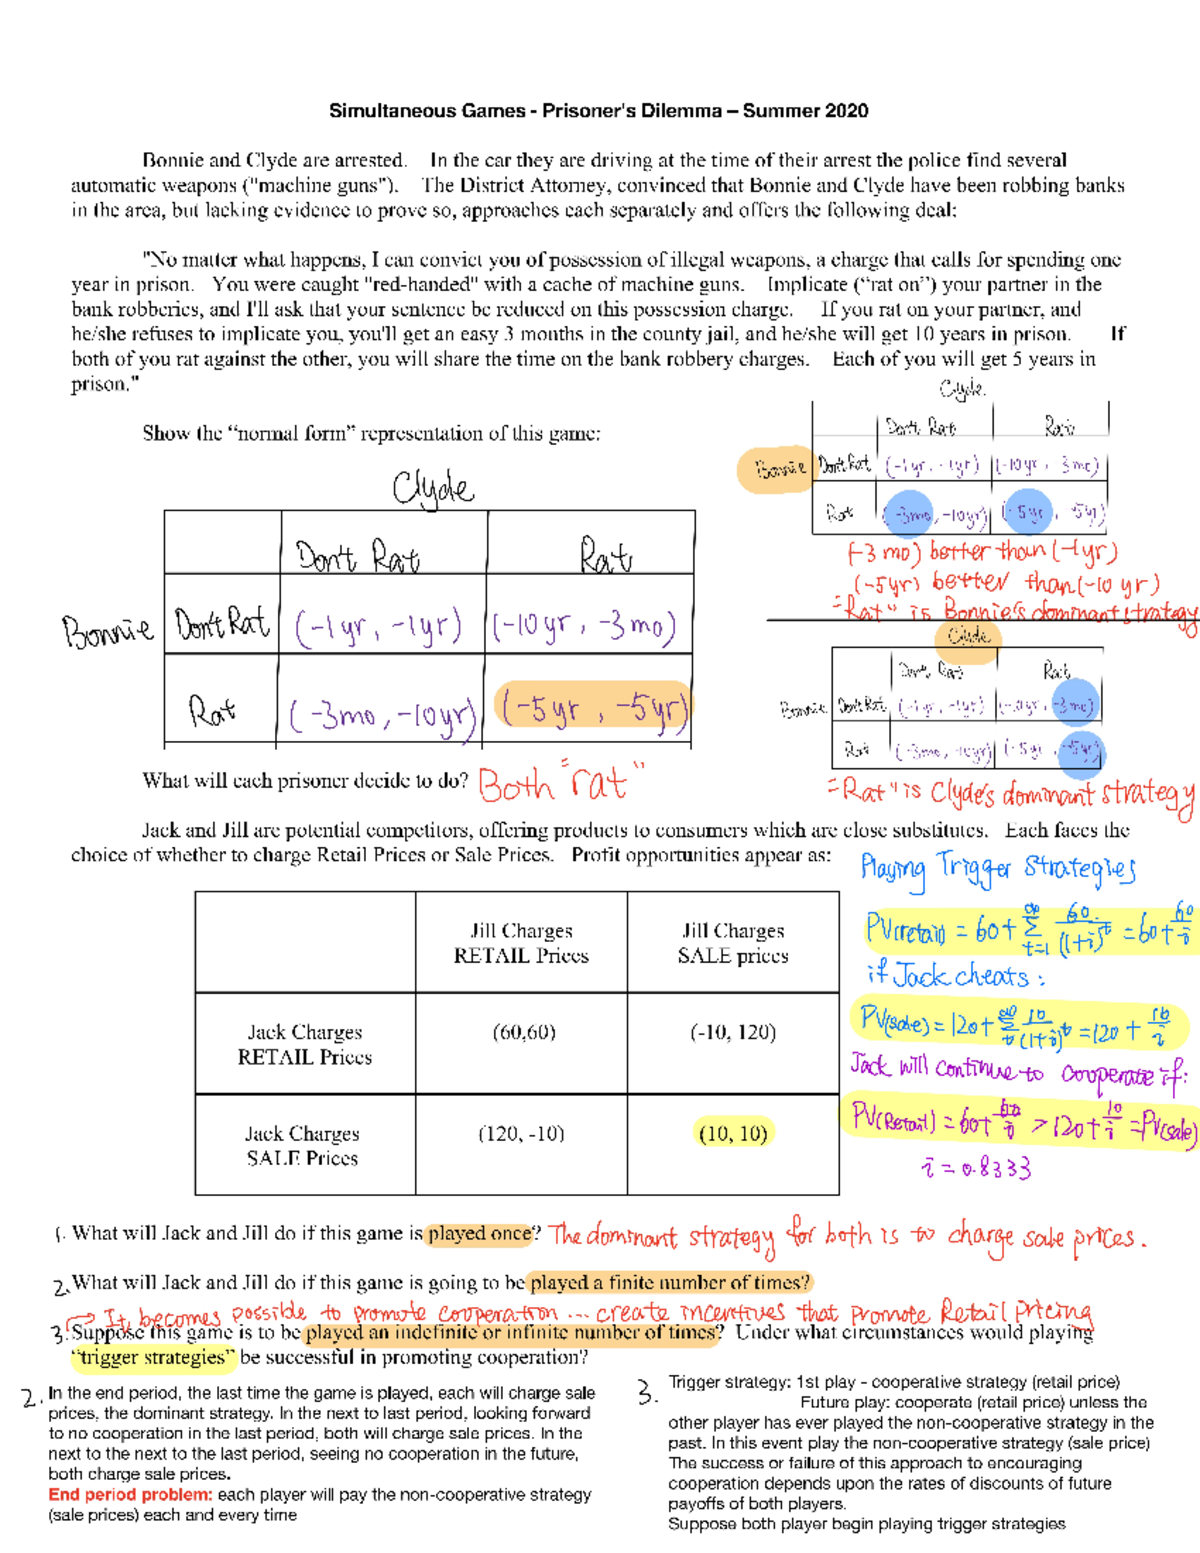 Simultaneous Games - Prisoner's Dilemma – Summer 2020
Bonnie and Clyde are arrested. In the car they are driving at the time of their arrest the police find several
automatic weapons ("machine guns"). The District Attorney, convinced that Bonnie and Clyde have been robbing banks
in the area, but lacking evidence to prove so, approaches each separately and offers the following deal:
"No matter what happens, I can convict you of possession of illegal weapons, a charge that calls for spending one
year in prison. You were caught "red-handed" with a cache of machine guns. Implicate ("rat on") your partner in the
bank robberies, and I'll ask that your sentence be reduced on this possession charge. If you rat on your partner, and
he/she refuses to implicate you, you'll get an easy 3 months in the county jail, and he/she will get 10 years in prison. If
both of you rat against the other, you will share the time on the bank robbery charges. Each of you will get 5 years in
prison."
Show the "normal form" representation of this game:
Clyde
Don't Rat Rat
Bonnie Don't Rat (-1 yr, -1 yr) (-10 yr, -3 mo)
Rat (-3 mo, -10 yr) (-5 yr, -5 yr)
Clyde
Don't Rat Rat
Bonnie Don't Rat (-1 yr, -1 yr) (-10 yr, 3 mo)
Rat (-3mo, -10yr) (-5yr, -5yr)
(-3 mo) better than (-1 yr)
(-5 yr) better than (-10 yr)
"Rat" is Bonnie's dominant strategy
Clyde
Don't Rat Rat
Bonnie Don't Rat (-1 yr, -1 yr) (-10 yr, -3 mo)
Rat (-3mo, -10 yr) (-5 yr, -5yr)
"Rat" is Clyde's dominant strategy
What will each prisoner decide to do? Both "rat"
Jack and Jill are potential competitors, offering products to consumers which are close substitutes. Each faces the
choice of whether to charge Retail Prices or Sale Prices. Profit opportunities appear as:
Jill Charges RETAIL Prices
Jill Charges SALE prices
Jack Charges RETAIL Prices (60,60) (-10, 120)
Jack Charges SALE Prices (120, -10) (10, 10)
Playing Trigger Strategies
PV(retail) = 60 + ∞Σt=1 60/(1+i)^t = 60 + 60/i
if Jack cheats:
PV(sale) = 120 + ∞Σt 10/(1+i)^t = 120 + 10/i
Jack will continue to cooperate if:
PV(Retail) = 60 + 60/i > 120 + 10/i = PV(sale)
i = 0.8333
1. What will Jack and Jill do if this game is played once? The dominant strategy for both is to charge sale prices.
2. What will Jack and Jill do if this game is going to be played a finite number of times?
→ It becomes possible to promote cooperation ... create incentives that promote Retail Pricing
3. Suppose this game is to be played an indefinite or infinite number of times? Under what circumstances would playing
"trigger strategies" be successful in promoting cooperation?
2. In the end period, the last time the game is played, each will charge sale
prices, the dominant strategy. In the next to last period, looking forward
to no cooperation in the last period, both will charge sale prices. In the
next to the next to the last period, seeing no cooperation in the future,
both charge sale prices.
End period problem: each player will pay the non-cooperative strategy
(sale prices) each and every time
3. Trigger strategy: 1st play - cooperative strategy (retail price)
Future play: cooperate (retail price) unless the
other player has ever played the non-cooperative strategy in the
past. In this event play the non-cooperative strategy (sale price)
The success or failure of this approach to encouraging
cooperation depends upon the rates of discounts of future
payoffs of both players.
Suppose both player begin playing trigger strategies